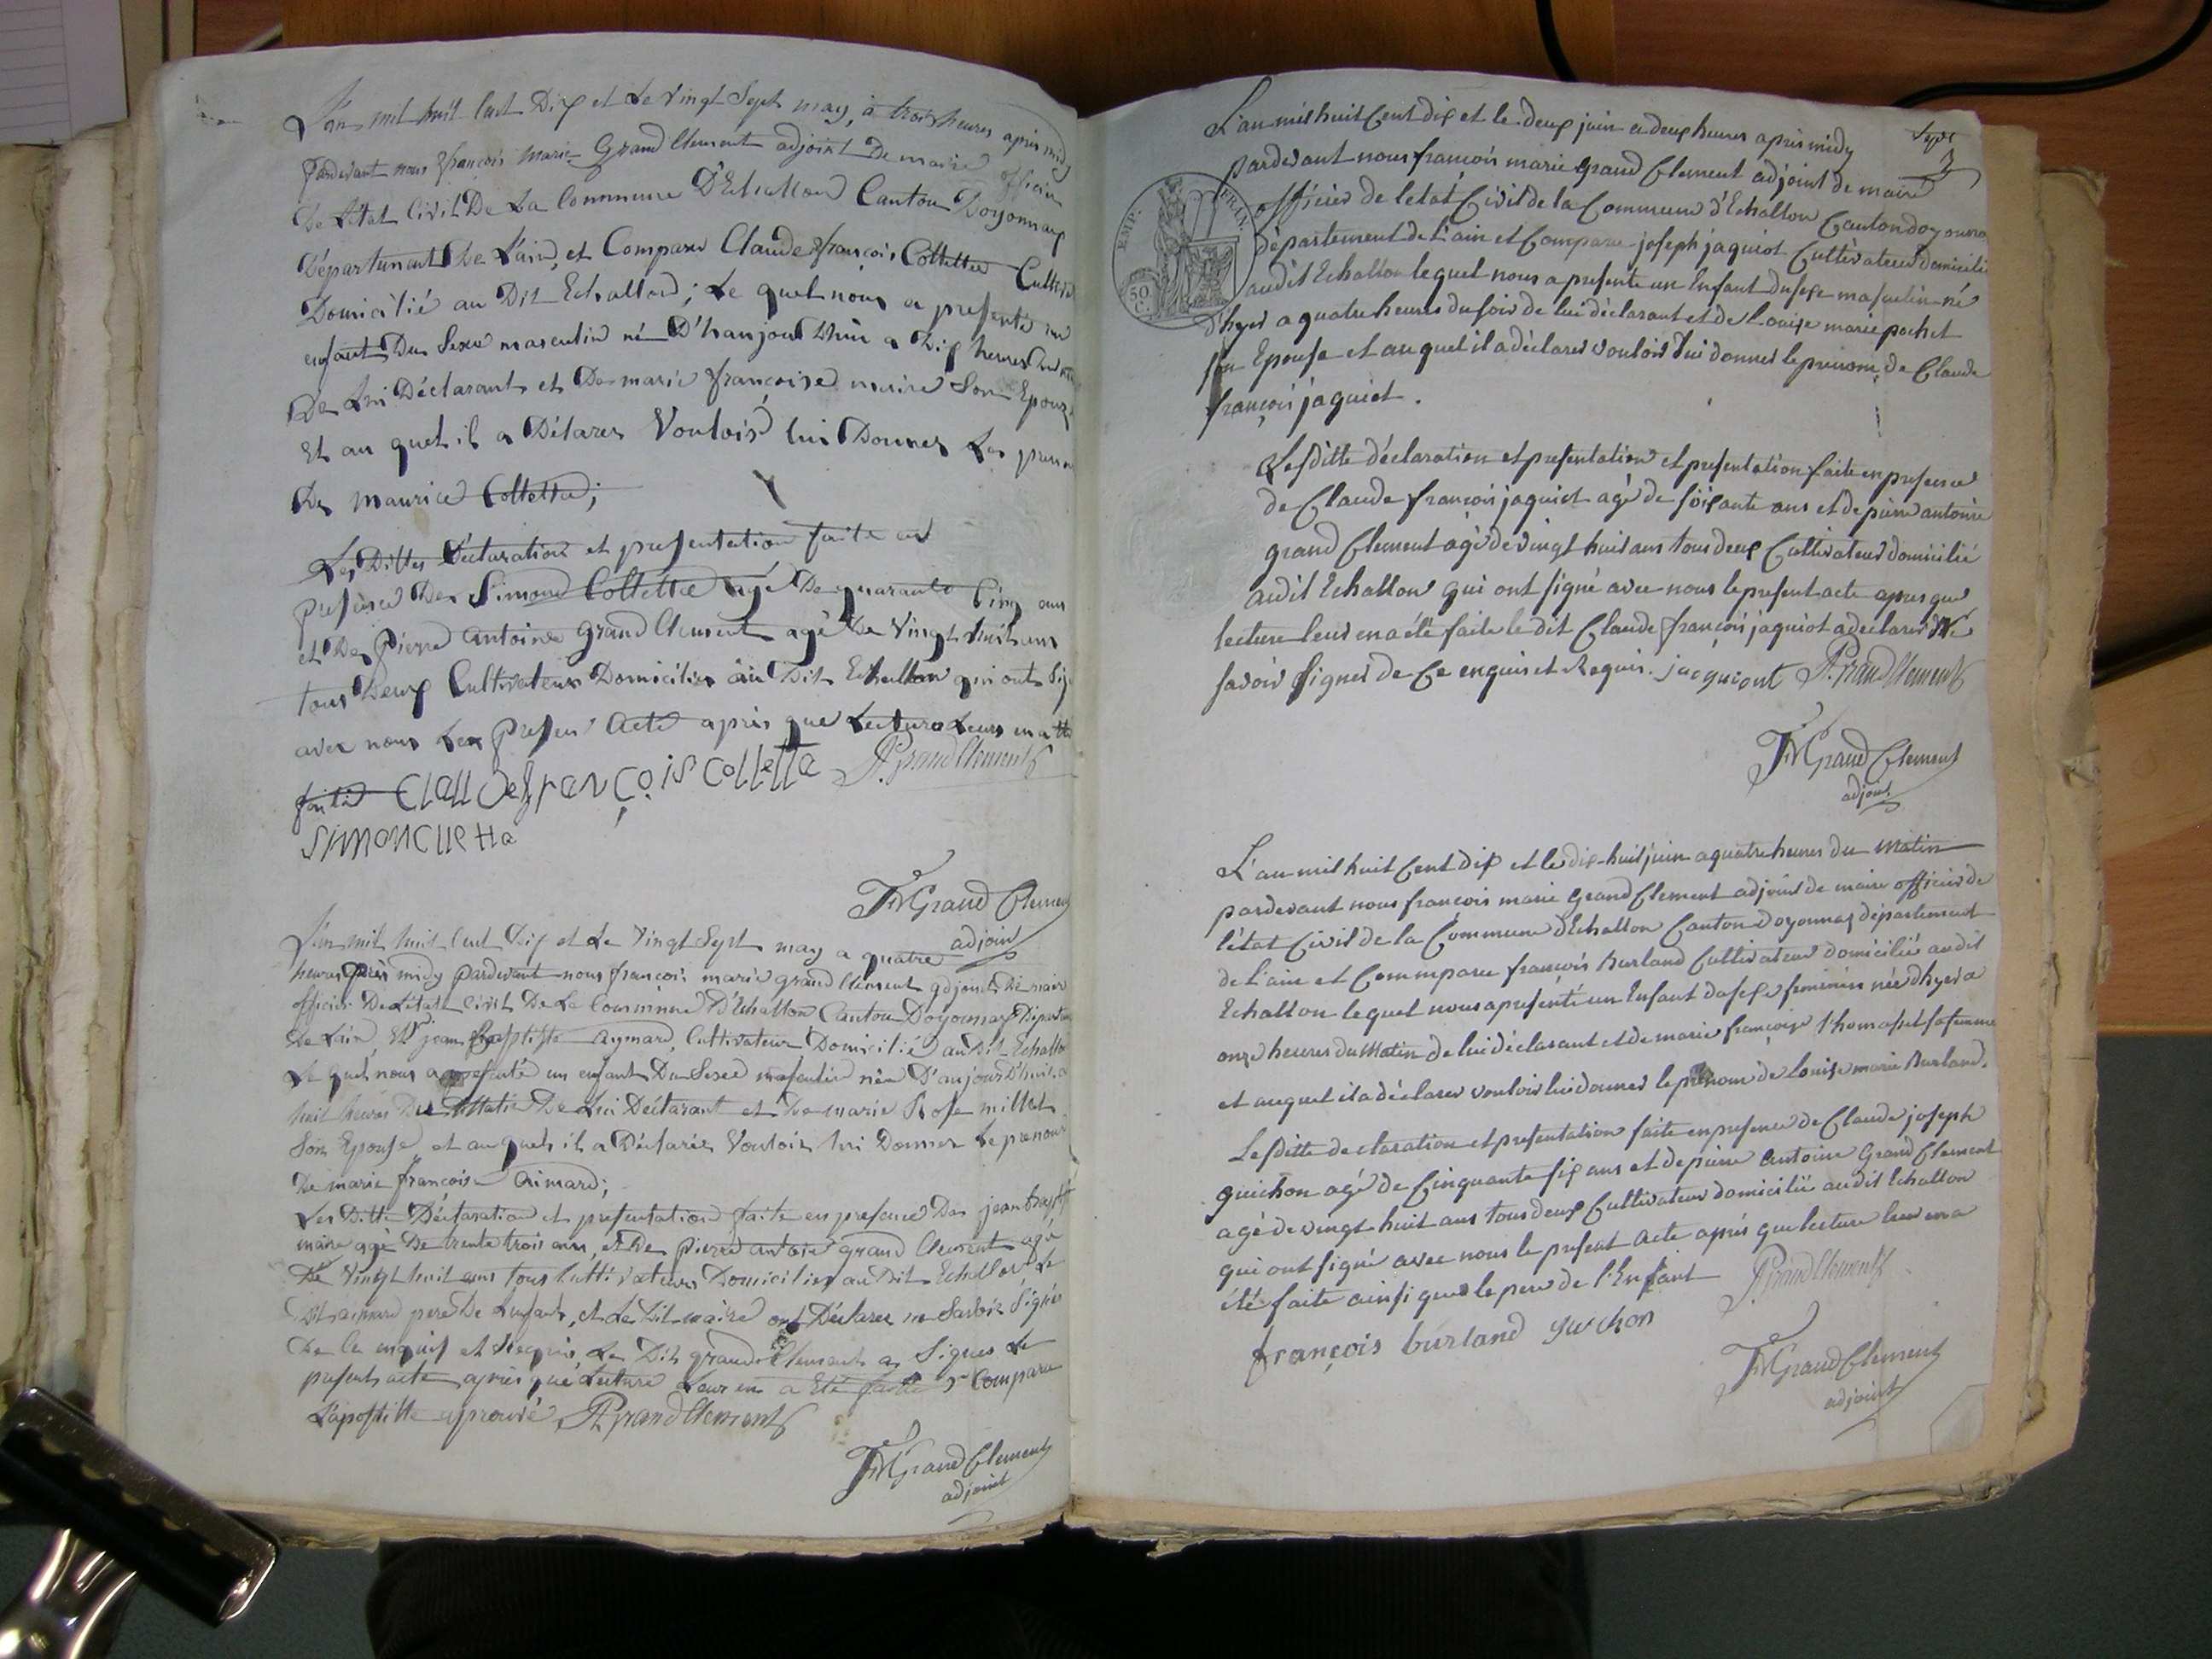 L'an mil huit Cent Dix et Le vingt Sept may, à trois heures après midy
Pardevant nous françois Marie Grand Clement adjoint De maire officier
De L'état Civil De La Commune D'Echallon Canton Doyonnax
Département De L'ain, et Comparu Claude françois Collettaz Cultiv
Domicilié au Dit Echallon; Le quel nous a presenté un
enfant Du Sexe masculin né D'haujourd'huy a Dix heures Du
De Lui Déclarant et De marie françoise maire Son Epouze
Et au quel il a Déclarer Vouloir lui Donner Les preno
De maurice Collettaz;
Les Dittes Déclaration et presentation faite en
presence De Simond Collettaz agé De quarante Cinq ans
et De Pierre antoine Grand Clement agé De Vingt huit ans
tous Deux Cultivateur Domicilier au Dit Echallon qui ont Sig
avec nous Le Presen Acte après que Lecture Leurs en a
faite Claude françois colletta PAgrandClement
Simon Cuetta
FM Grand Clement
adjoin
L'an mil huit Cent Dix et Le Vingt Sept may a quatre
heures après midy Pardevant nous françois marie grand Clement adjoint De maire
officier De L'état Civil De La Commune D'Echallon Canton Doyonnax Départem
De L'ain, jean Baptiste Aymard, Cultivateur Domicilié au Dit Echallo
Le quel nous a presenté un enfant Du Sexe masculin née D'aujourd'huit a
huit heures Du Matin De Lui Déclarant et De marie Rose millet
Son Epouse, et au quel il a Déclarer Vouloir lui Donner Le prenom
De marie françoise Aimard;
Les Ditte Déclaration et presentation faite en presence De jean bapt
maire agé De trente trois ans, et De pierre antoine grand Clement agé
De Vingt huit ans tous Cultivateurs Domicilier au Dit Echallon Le
Dit aimard pere De L'enfant, et Le Dit maire ont Déclarer ne Savoir Signer
De Ce enquis et Requis, Le Dit grand Clement a Signer Le
present acte après que Lecture Leur en a Eté faitte Comparu
L'apostille aprouvé PAgrandClement
FM Grand Clement
adjoint
Sept
L'an mil huit Cent dix et le deux juin a deux heures après midy
pardevant nous françois marie grand Clement adjoint de maire
EMP.
50 C.
officier de letat Civil de la Commune d'Echallon Canton doyonna
département de L'ain et Compare joseph jaquiot Cultivateur domicilié
audit Echallon lequel nous a presente un Enfant du sexe masculin né
d'hyer a quatre heures du soir de lui déclarant et de Louise marie pochet
son Epouse et auquel il a déclarer vouloir lui donner le prenom de Claude
françois jaquiot.
Lesditte déclaration et presentation et presentation faite en presence
de Claude françois jaquiot agé de soixante ans et de pierre antoine
grand Clement agé de vingt huit ans tous deux Cultivateur domicilié
audit Echallon qui ont signé avec nous le present acte apres que
lecture leur en a été faite le dit Claude françois jaquiot a declarer Ne
savoir signer de Ce enquis et Requis. jacquiont PAgrandClement
FM Grand Clement
adjoint
L'an mil huit Cent dix et le dix-huit juin a quatre heures du Matin
pardevant nous françois marie Grand Clement adjoint de maire officier de
létat Civil de la Commune d'Echallon Canton doyonnax département
de L'ain et Commparu françois Burland Cultivateur domicilié audit
Echallon lequel nous a presenté un Enfant du sexe feminin née dhyer a
onze heures du Matin de lui déclarant et de marie françoise Thomasset sa femme
et auquel il a déclarer vouloir lui donner le prénom de Louise marie Burland.
Lesditte declaration et presentation faite en presence de Claude joseph
guichon agé de Cinquante six ans et de pierre Antoine Grand Clement
agé de vingt huit ans tous deux Cultivateur domicilié audit Echallon
qui ont signé avec nous le present Acte après que lecture leur en a
été faite ainsi que le pere de l'Enfant PAgrandClement
françois burland guichon
FM Grand Clement
adjoint